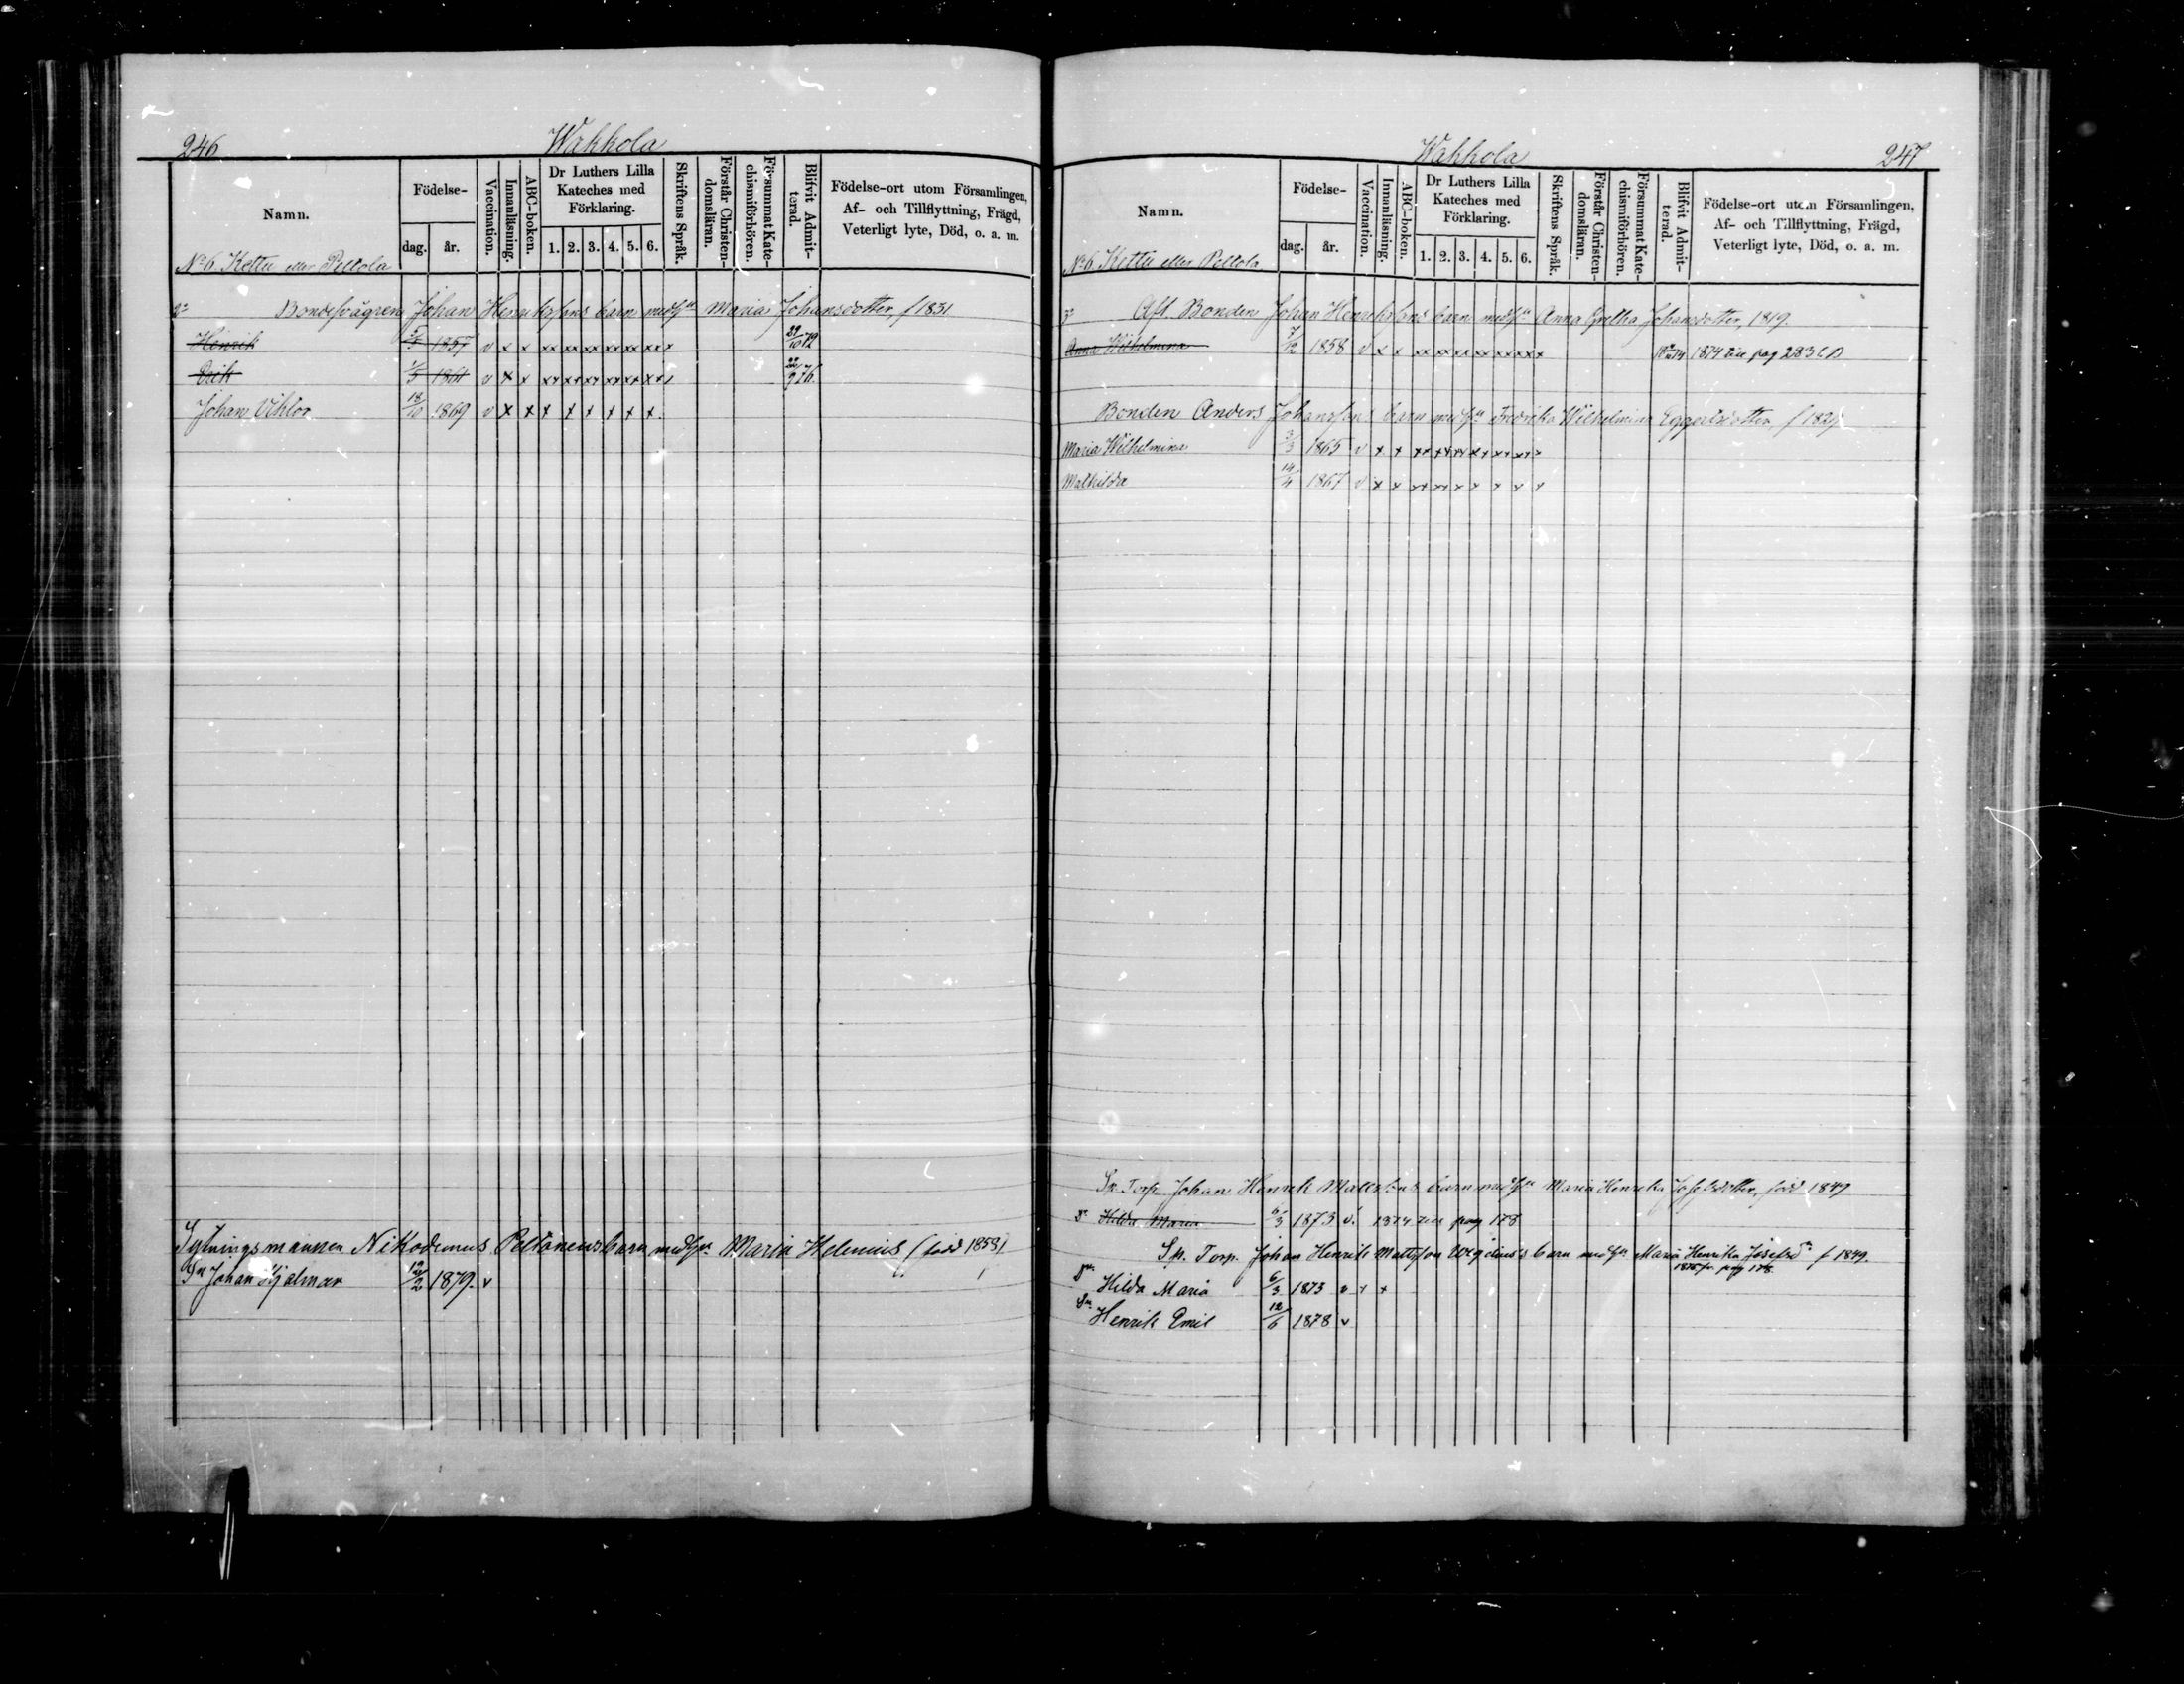 246
Wahkola
Namn.
Födelse-
dag.
år.
Vaccination.
Innanläsning.
ABC-boken.
Dr Luthers Lilla
Kateches med
Förklaring.
1. 2. 3. 4. 5. 6.
Skriftens Språk.
Förstår Christen-
domsläran.
Försummat Kate-
chismiförhören.
Blifvit Admit-
terad.
Födelse-ort utom Församlingen,
Af- och Tillflyttning, Frägd,
Veterligt lyte, Död, o. a. m.
No 6 Kettu eller Peltola
Bondesvågren Johan Henrikssons barn med hu Maria Johansdotter, f 1831
Henrik 1857 v x x xx xx xx xx xx xx x
Erik 1/5 1861 v x x xx xx xx xx xx xx x 22/9 76.
Johan Vihtor 18/10 1869 v x x x x x x x x
Sytningsmannen Nikodemus Peltonens barn med hu Maria Helenius (född 1853)
Sn Johan Hjalmar 12/2 1879. v
Wahkola
247
Namn.
Födelse-
dag.
år.
Vaccination.
Innanläsning.
ABC-boken.
Dr Luthers Lilla
Kateches med
Förklaring.
1. 2. 3. 4. 5. 6.
Skriftens Språk.
Förstår Christen-
domsläran.
Försummat Kate-
chismiförhören.
Blifvit Admit-
terad.
Födelse-ort utom Församlingen,
Af- och Tillflyttning, Frägd,
Veterligt lyte, Död, o. a. m.
No 6 Kettu eller Peltola
Afl. Bonden Johan Henrikssons barn med hu Anna Gretha Johansdotter, 1819.
Anna Wilhelmina 7/12 1858 v x x xx xx xx xx xx xx x 1874 till pag 283
Bonden Anders Johanssons barn med hu Fredrika Wilhelmina Eggertsdotter, f
Maria Wilhelmina 3/3 1865 v x x xx xx xx xx xx xx
Mathilda 14/4 1867 v x x xx xx x x x x x
Sp. Torp. Johan Henrik Mattssons barn med hu Maria Henrika Josefsdotter, född 1849
Dr Hilda Maria 6/3 1873 v. 1874 till pag 178
Sp. Torp. Johan Henrik Mattsson barn med hu Maria Henrika Josefsdr f 1849.
1875 fr. pag 178.
Dr Hilda Maria 6/3 1873 v x x
Sn Henrik Emil 12/6 1878 v